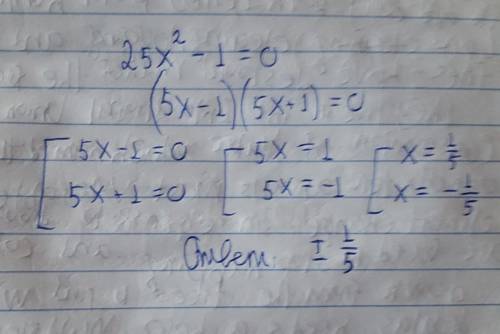 25x² - 1 = 0
(5x-1)(5x+1) = 0
[ 5x-1=0 [ 5x=1 [ x=1/5
5x+1=0 5x=-1 x=-1/5
Ответ: ± 1/5